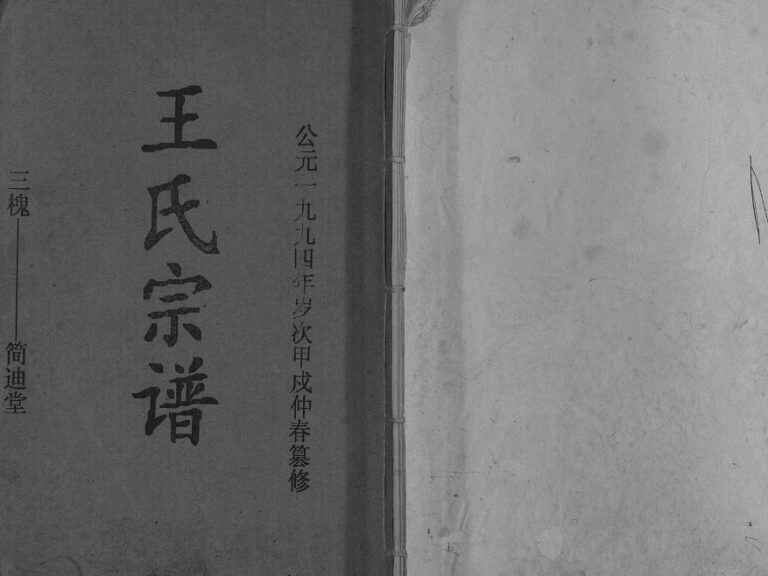 公元一九九四年岁次甲戍仲春篡修
王氏宗谱
三槐———简迪堂